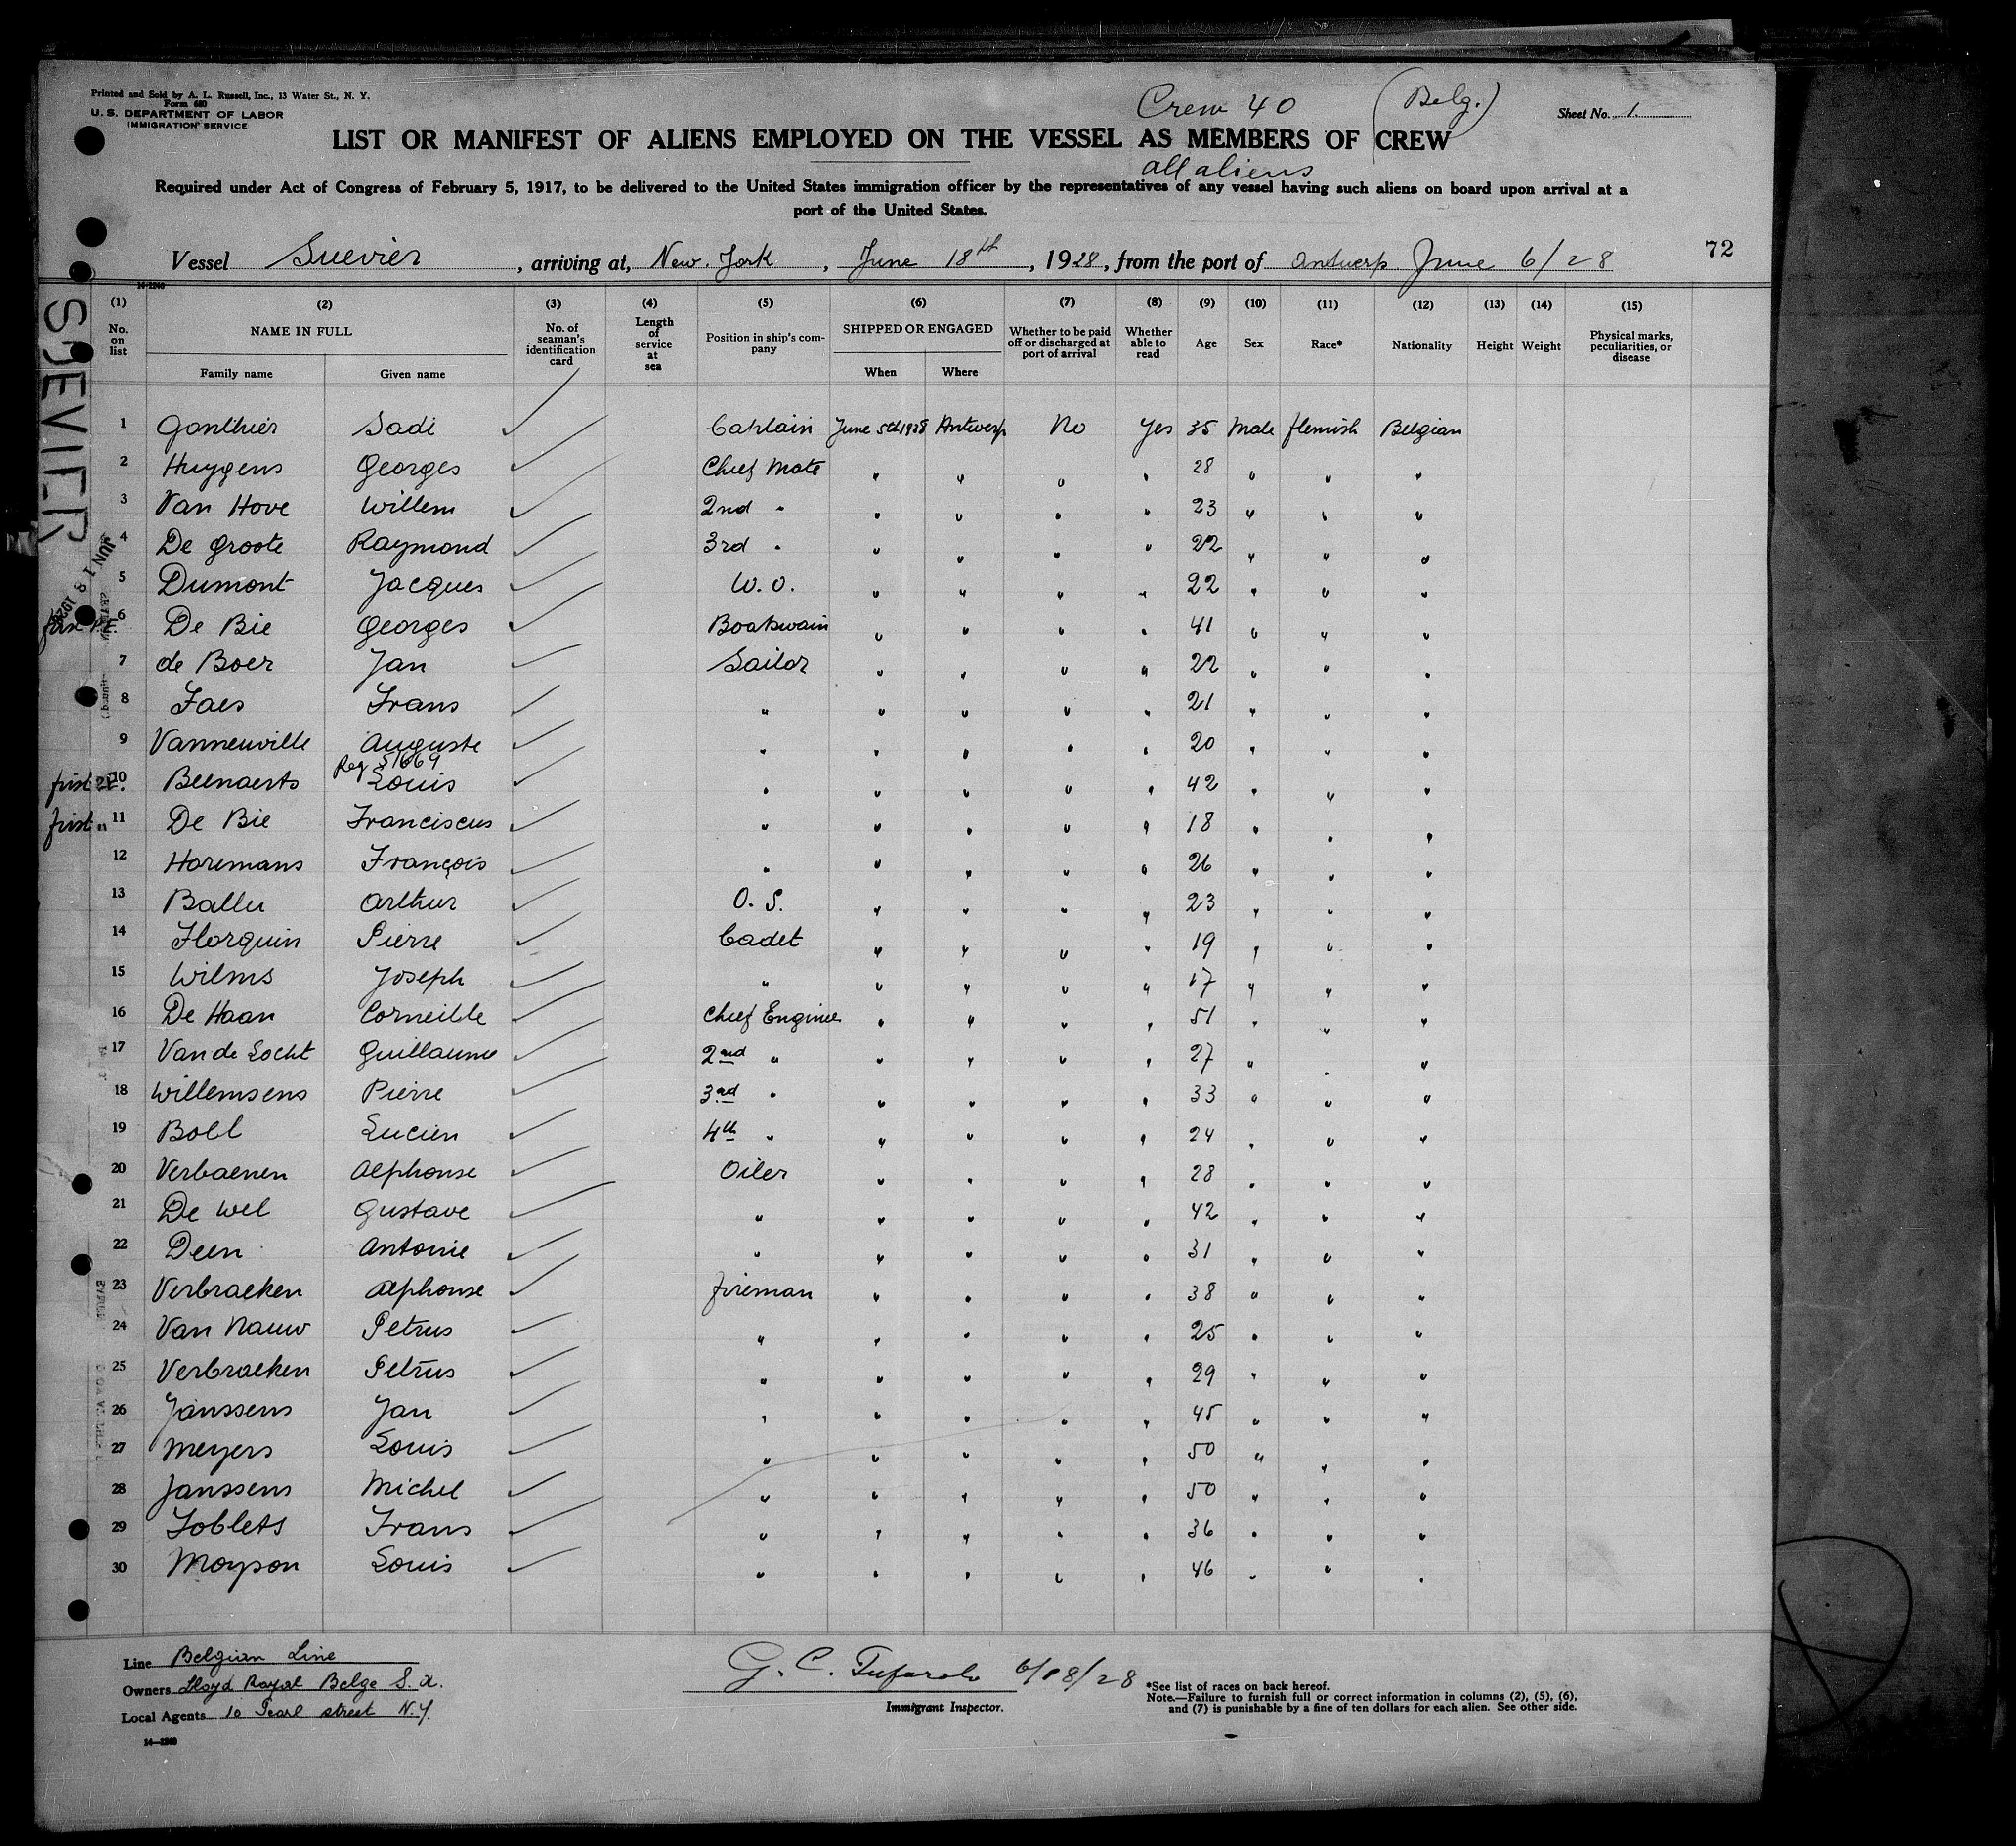 Printed and Sold by A. L. Russell, Inc., 13 Water St., N. Y.
Form 680
U. S. DEPARTMENT OF LABOR
IMMIGRATION SERVICE
Crew 40 (Belg.)
Sheet No. 1.
LIST OR MANIFEST OF ALIENS EMPLOYED ON THE VESSEL AS MEMBERS OF CREW
all aliens
Required under Act of Congress of February 5, 1917, to be delivered to the United States immigration officer by the representatives of any vessel having such aliens on board upon arrival at a
port of the United States.
Vessel Suevier, arriving at, New. York, June 18th, 1928, from the port of Antwerp June 6/28
72
14-1240
SUEVIER
JUN 18 1928
(1) (2) (3) (4) (5) (6) (7) (8) (9) (10) (11) (12) (13) (14) (15)
No. on list
NAME IN FULL
Family name Given name
No. of seaman's identification card
Length of service at sea
Position in ship's company
SHIPPED OR ENGAGED
When Where
Whether to be paid off or discharged at port of arrival
Whether able to read
Age Sex Race* Nationality Height Weight
Physical marks, peculiarities, or disease
1 Gonthier Sadi Captain June 5th 1928 Antwerp No Yes 35 Male flemish Belgian
2 Huygens Georges Chief Mate " " " " 28 " " "
3 Van Hove Willem 2nd " " " " " 23 " " "
4 De Groote Raymond 3rd " " " " " 22 " " "
5 Dumont Jacques W.O. " " " " 22 " " "
first 6 De Bie Georges Boatswain " " " " 41 " " "
7 de Boer Jan Sailor " " " " 22 " " "
8 Faes Frans " " " " " 21 " " "
9 Vanneuville Auguste " " " " " 20 " " "
Reg 51669
first 10 Beenaerts Louis " " " " " 42 " " "
first " 11 De Bie Franciscus " " " " " 18 " " "
12 Horemans François " " " " " 26 " " "
13 Balleu Arthur O. S. " " " " 23 " " "
14 Florquin Pierre Cadet " " " " 19 " " "
15 Wilms Joseph " " " " " 17 " " "
16 De Haan Corneille Chief Enginee " " " " 51 " " "
17 Van de Locht Guillaume 2nd " " " " " 27 " " "
18 Willemsens Pierre 3rd " " " " " 33 " " "
19 Boll Lucien 4th " " " " " 24 " " "
20 Verbaenen Alphonse Oiler " " " " 28 " " "
21 De Wel Gustave " " " " " 42 " " "
22 Deen Antonie " " " " " 31 " " "
23 Verbraeken Alphonse fireman " " " " 38 " " "
24 Van Nauw Petrus " " " " " 25 " " "
25 Verbraeken Petrus " " " " " 29 " " "
26 Janssens Jan " " " " " 45 " " "
27 Meyers Louis " " " " " 50 " " "
28 Janssens Michel " " " " " 50 " " "
29 Joblets Frans " " " " " 36 " " "
30 Moyson Louis " " " " " 46 " " "
Line Belgian Line
Owners Lloyd Royal Belge S. A.
Local Agents 10 Pearl street N.Y.
14-1240
G. C. Tufarolo 6/18/28
Immigrant Inspector.
*See list of races on back hereof.
Note.—Failure to furnish full or correct information in columns (2), (5), (6),
and (7) is punishable by a fine of ten dollars for each alien. See other side.